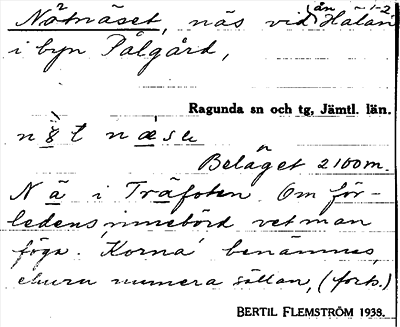 Nötnäset, näs vid ån Halån 1-2
i byn Pålgård,
Ragunda sn och tg, Jämtl. län.
Beläget 2100 m.
N ä i Träfoten. Om för-
ledens innebörd vet man
föga. 'Korna' benämnes,
ehuru numera sällan, (forts.)
BERTIL FLEMSTRÖM 1938.